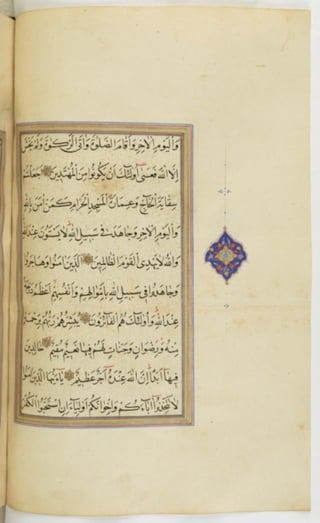 وَالْيَوْمِ الْاٰخِرِ وَاَقَامَ الصَّلٰوةَ وَاٰتَى الزَّكٰوةَ وَلَمْ يَخْشَ
اِلَّا اللهَ فَعَسٰى اُولٰئِكَ اَنْ يَكُونُوا مِنَ الْمُهْتَدِينَ اَجَعَلْتُمْ
سِقَايَةَ الْحَاجِّ وَعِمَارَةَ الْمَسْجِدِ الْحَرَامِ كَمَنْ اٰمَنَ بِاللهِ
وَالْيَوْمِ الْاٰخِرِ وَجَاهَدَ فِي سَبِيلِ اللهِ لَا يَسْتَوُونَ عِنْدَ اللهِ
وَاللهُ لَا يَهْدِي الْقَوْمَ الظَّالِمِينَ اَلَّذِينَ اٰمَنُوا وَهَاجَرُوا
وَجَاهَدُوا فِي سَبِيلِ اللهِ بِاَمْوَالِهِمْ وَاَنْفُسِهِمْ اَعْظَمُ دَرَجَةً
عِنْدَ اللهِ وَاُولٰئِكَ هُمُ الْفَائِزُونَ يُبَشِّرُهُمْ رَبُّهُمْ بِرَحْمَةٍ
مِنْهُ وَرِضْوَانٍ وَجَنَّاتٍ لَهُمْ فِيهَا نَعِيمٌ مُقِيمٌ خَالِدِينَ
فِيهَا اَبَدًا اِنَّ اللهَ عِنْدَهُ اَجْرٌ عَظِيمٌ يَا اَيُّهَا الَّذِينَ اٰمَنُوا
لَا تَتَّخِذُوا اٰبَاءَكُمْ وَاِخْوَانَكُمْ اَوْلِيَاءَ اِنِ اسْتَحَبُّوا الْكُفْرَ